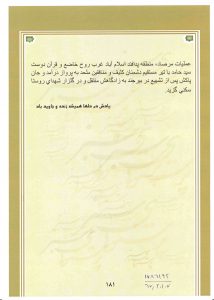 عملیات مرصاد، منطقه پدافند اسلام آباد غرب روح خاضع و قرآن دوست
سید حامد با تیر مستقیم دشمنان کثیف و منافقین ملحد به پرواز درآمد و جان
پاکش پس از تشییع در بیرجند به زادگاهش منتقل و در گلزار شهدای روستا
سکنی گزید.
یادش در دلها همیشه زنده و جاوید باد
۱۸۱